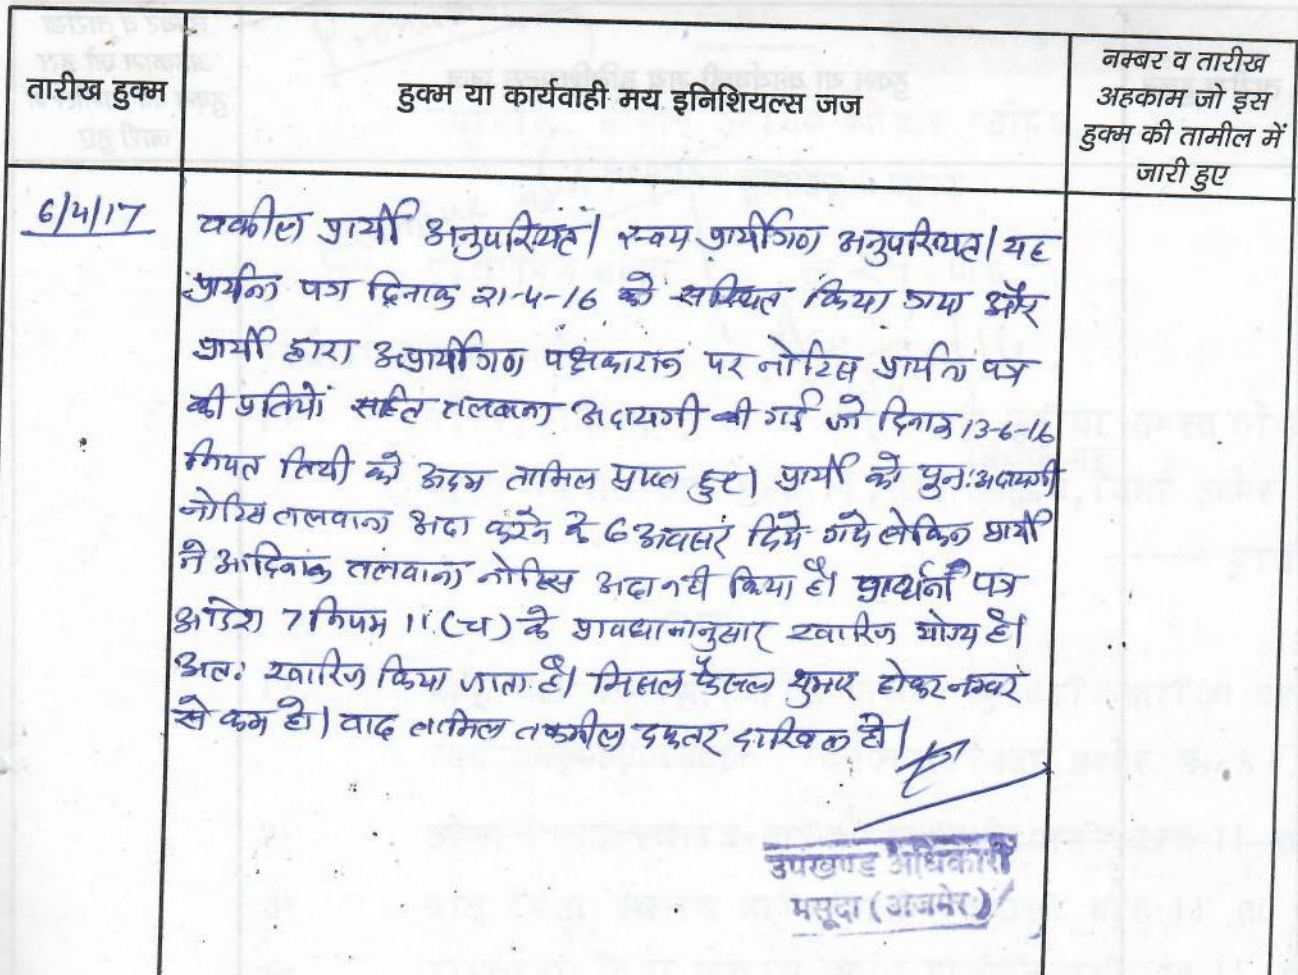 तारीख हुक्म
हुक्म या कार्यवाही मय इनिशियल्स जज
नम्बर व तारीख
अहकाम जो इस
हुक्म की तामील में
जारी हुए
6/4/17
वकील प्रार्थी अनुपस्थित। स्वयं प्रार्थीगण अनुपस्थित। यह
प्रार्थना पत्र दिनांक 21-4-16 को संस्थित किया गया और
प्रार्थी द्वारा अप्रार्थीगण पक्षकारान पर नोटिस प्रार्थना पत्र
की प्रतियों सहित तलवाना अदायगी की गई जो दिनांक 13-6-16
नियत तिथी को अदम तामिल प्राप्त हुए। प्रार्थी को पुनः अदायगी
नोटिस तलवाना अदा करने के 6 अवसर दिये गये लेकिन प्रार्थी
ने आदिनांक तलवाना नोटिस अदा नही किया है। प्रार्थना पत्र
आदेश 7 नियम 11 (च) के प्रावधानानुसार खारिज योग्य है।
अतः खारिज किया जाता है। मिसल फैसल शुमार होकर नम्बर
से कम हो। वाद तामिल तकमील दफ्तर दाखिल हो।
उपखण्ड अधिकारी
मसूदा (अजमेर)